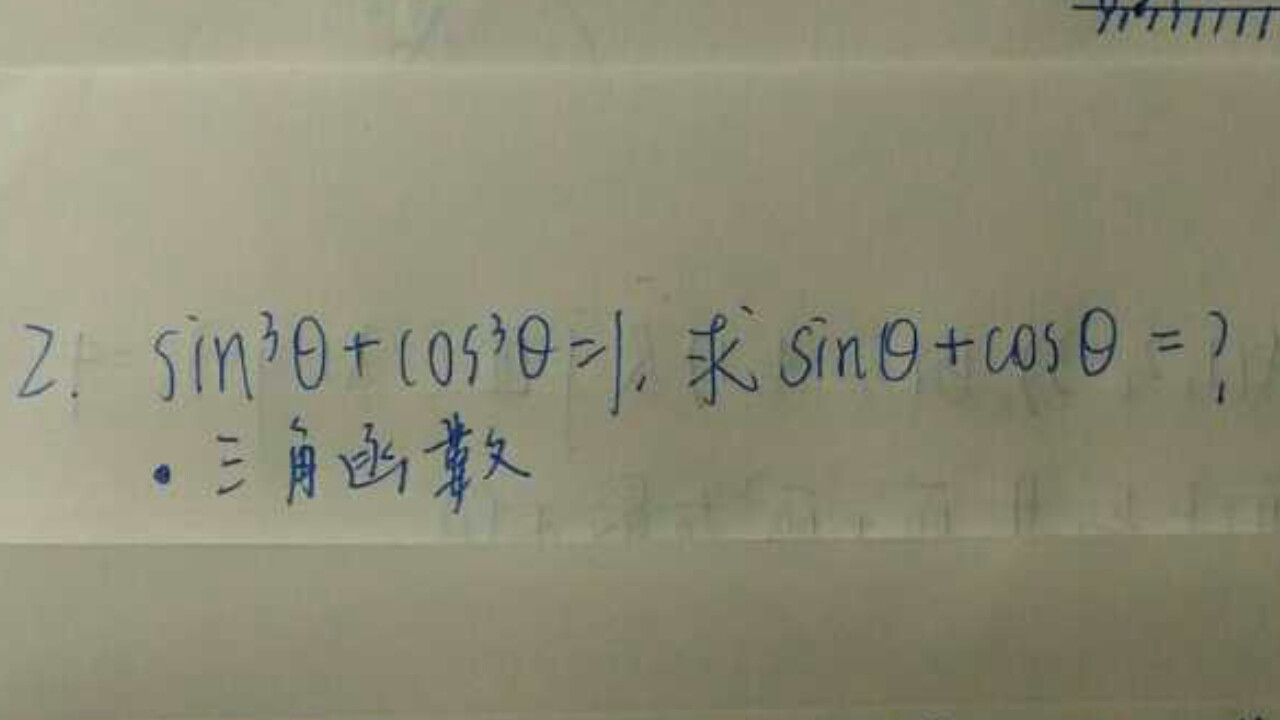 2. sin³θ+cos³θ=1, 求 sinθ+cosθ=?
• 三角函數